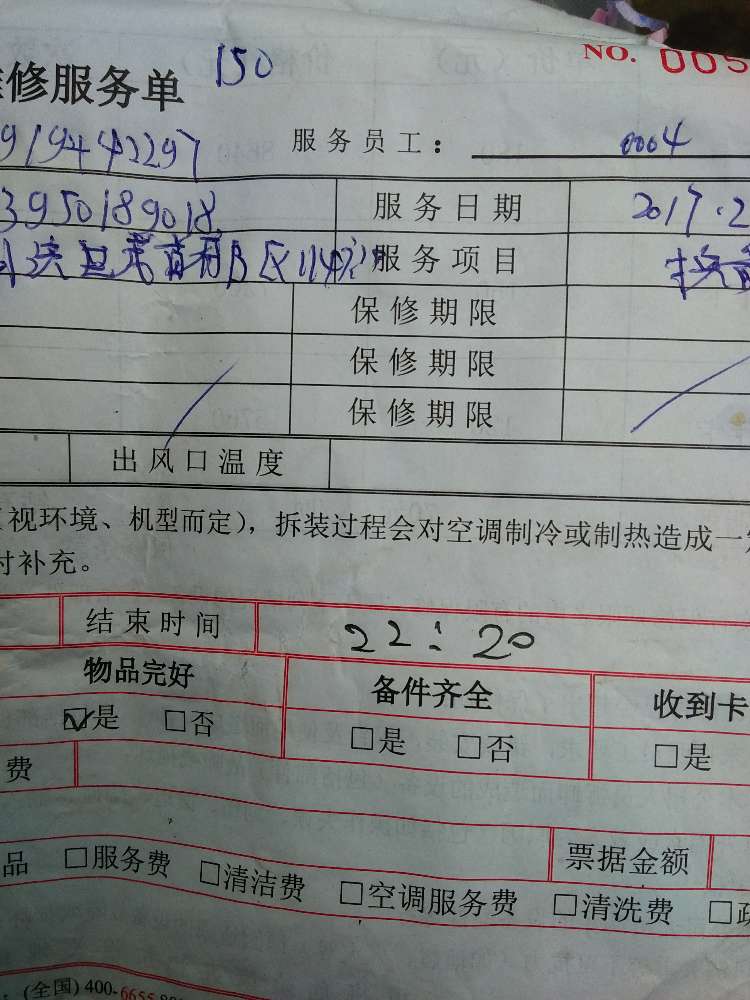 NO. 005
修服务单 150
919442297 服务员工： 0004
3950189018 服务日期 2017.2
B区114 服务项目 换
保修期限
保修期限
保修期限
出风口温度
视环境、机型而定），拆装过程会对空调制冷或制热造成一
时补充。
结束时间 22:20
物品完好 备件齐全 收到卡
☑是 □否 □是 □否 □是
费
品 □服务费 □清洁费 □空调服务费 □清洗费 票据金额
(全国) 400-6655